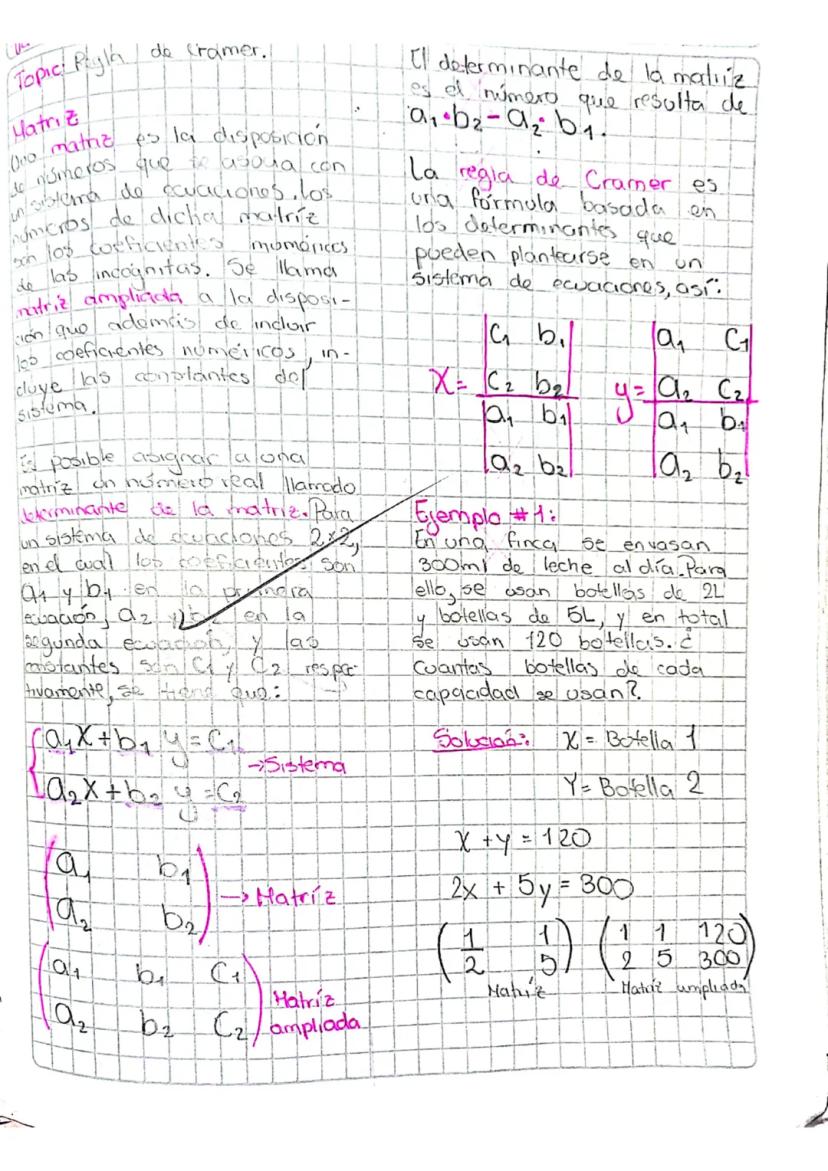 Topic: Regla de Cramer.
Matriz
Una matriz es la disposición
de números que se asocia con
un sistema de ecuaciones. Los
números de dicha matríz
son los coeficientes numéricos
de las incógnitas. Se llama
matriz ampliada a la disposi-
ción que además de incluir
los coeficientes numéricos, in-
cluye las constantes del
sistema.
Es posible asignar a una
matriz un número real llamado
determinante de la matriz. Para
un sistéma de ecuaciones 2x2,
en el cual los coeficientes son
a₁ y b₁ en la primera
ecuación, a₂ y b₂ en la
segunda ecuación, y las
constantes son C₁ y C₂ respec-
tivamente, se tiene que:
a₁x + b₁ y = C₁
→ Sistema
a₂x + b₂ y = C₂
a₁ b₁
→ Matríz
a₂ b₂
a₁ b₁ C₁
Matríz
ampliada
a₂ b₂ C₂
El determinante de la matríz
es el número que resulta de
a₁·b₂-a₂·b₁.
La regla de Cramer es
una fórmula basada en
los determinantes que
pueden plantearse en un
sistema de ecuaciones, así:
C₁ b₁
X= C₂ b₂
a₁ b₁
a₂ b₂
a₁ C₁
y= a₂ C₂
a₁ b₁
a₂ b₂
Ejemplo #1:
En una finca se envasan
300ml de leche al día. Para
ello, se usan botellas de 2L
y botellas de 5L, y en total
se usan 120 botellas. ¿
Cuantas botellas de cada
capacidad se usan?
Solución: X = Botella 1
Y = Botella 2
x + y = 120
2x + 5y = 300
1 1
2 5
Matríz
1 1 120
2 5 300
Matríz ampliada